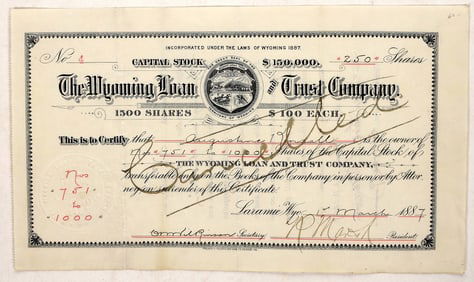 INCORPORATED UNDER THE LAWS OF WYOMING 1887.
No 4 CAPITAL STOCK $150,000. 250 Shares
The Wyoming Loan and Trust Company.
1500 SHARES $100 EACH.
Cancelled
This is to Certify that is the owner of
Nos 751 to 1000 Shares of the Capital Stock of
THE WYOMING LOAN AND TRUST COMPANY,
transferable only on the Books of the Company in person or by Attor-
ney on surrender of this Certificate.
Nos
751
to
1000
Laramie Wyo. March 1887
Secretary President